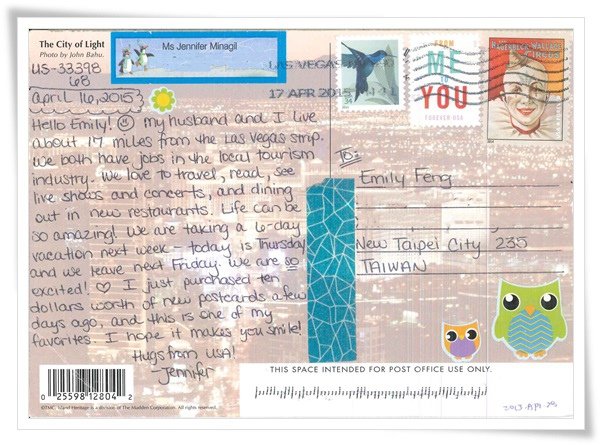 The City of Light
Photo by John Bahu.
Ms Jennifer Minagil
US-33398
68
April 16, 2015
Hello Emily! My husband and I live
about 17 miles from the Las Vegas strip.
We both have jobs in the local tourism
industry. We love to travel, read, see
live shows and concerts, and dining
out in new restaurants. Life can be
so amazing! We are taking a 6-day
vacation next week - today is Thursday
and we leave next Friday. We are so
excited! ♡ I just purchased ten
dollars worth of new postcards a few
days ago, and this is one of my
favorites. I hope it makes you smile!
Hugs from USA!
-Jennifer
0 25598 12804 2
©TMC. Island Heritage is a division of The Madden Corporation. All rights reserved.
LAS VEGAS
17 APR 2015
34
FROM
ME
TO
YOU
FOREVER USA
HAGENBECK-WALLACE
CIRCUS
To:
Emily Feng
New Taipei City 235
TAIWAN
THIS SPACE INTENDED FOR POST OFFICE USE ONLY.